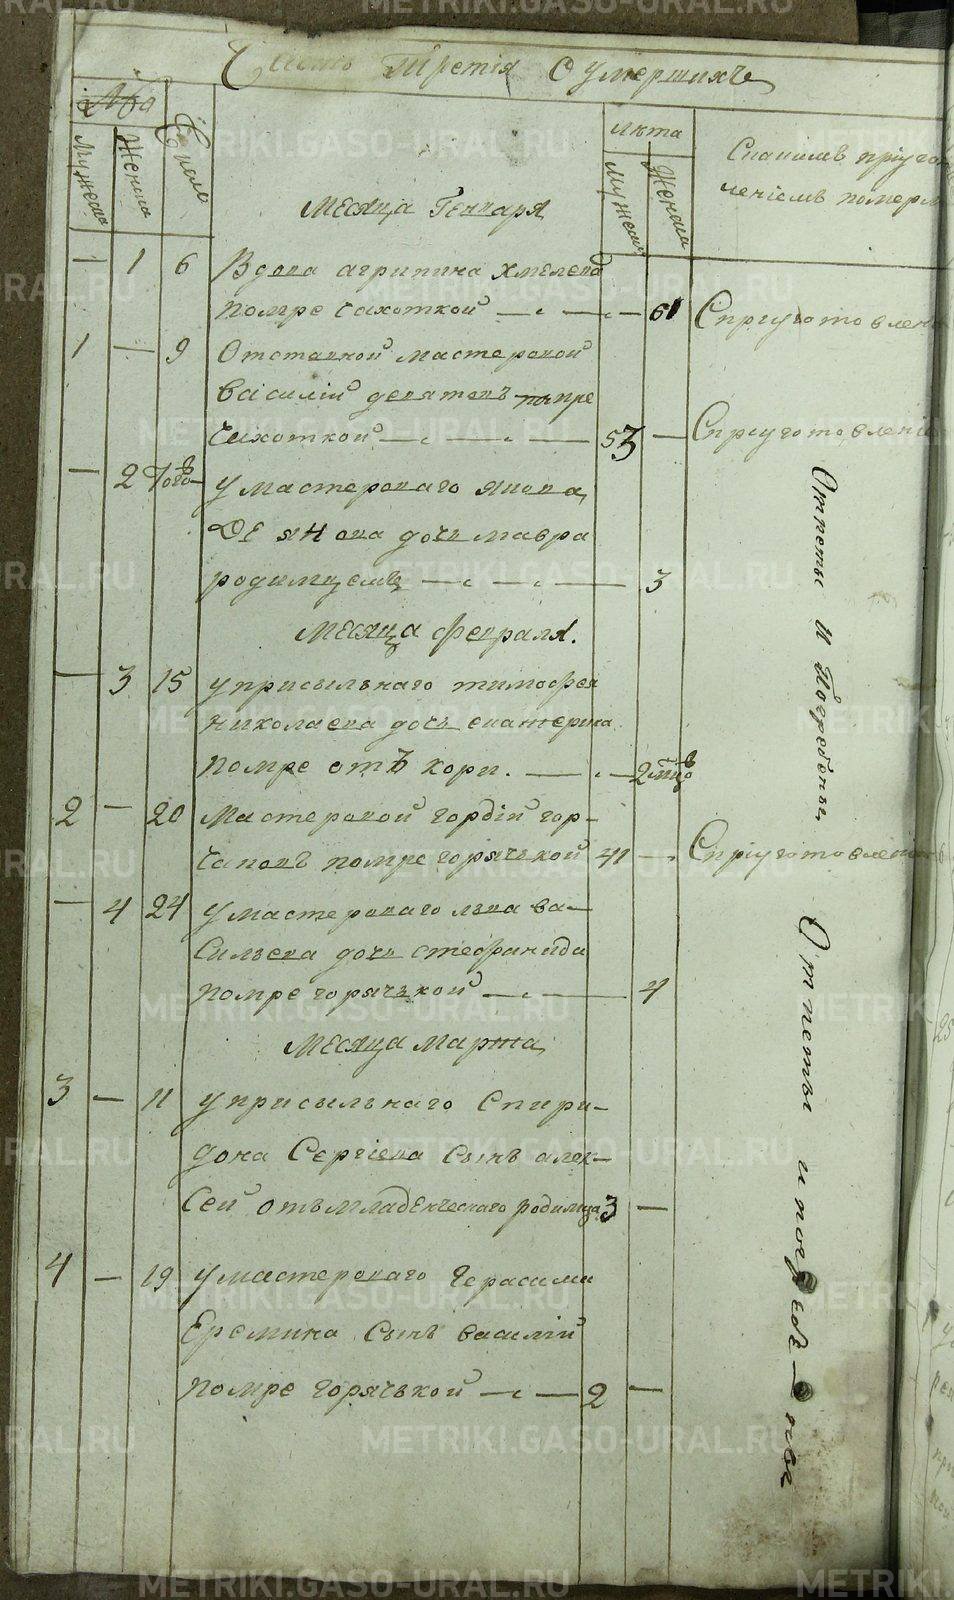 Часть Третія О умершихъ
№
Мужеска
Женска
Число
Лѣта
Мужеска
Женска
Спокаліев пріуго
леніемъ помер
Месяца Генваря
— 1 6 Вдова агрипина Хмелева
помре чахоткой — 61 Спріуготовлен
1 — 9 Отставной мастеровой
василій девятовъ помре
чахоткой — 53 — Спріуготовлені
— 2 Того умастероваго якова
Демянова дочь мавра
родимцемъ — 3
Месяца февраля.
— 3 15 уприсыльнаго тимофея
николаева дочь екатерина
помре отъ кори. — 2 мцо
2 — 20 Мастеровой гордій гор-
чаковъ помре горячькой 41 — Спріуготовлені
— 4 24 умастероваго льва ва-
сильева дочь стефанида
помре горячькой — 4
Месяца Марта
3 — 11 уприсыльнаго Спири-
дона Сергіева сынъ алек-
сей отъ младенческаго родимца 3 —
4 — 19 умастероваго Герасима
Еремина сынъ василій
помре горячькой — 2 —
Отпеты и Погребены
Отпеты и погребе-ны
METRIKI.GASO-URAL.RU